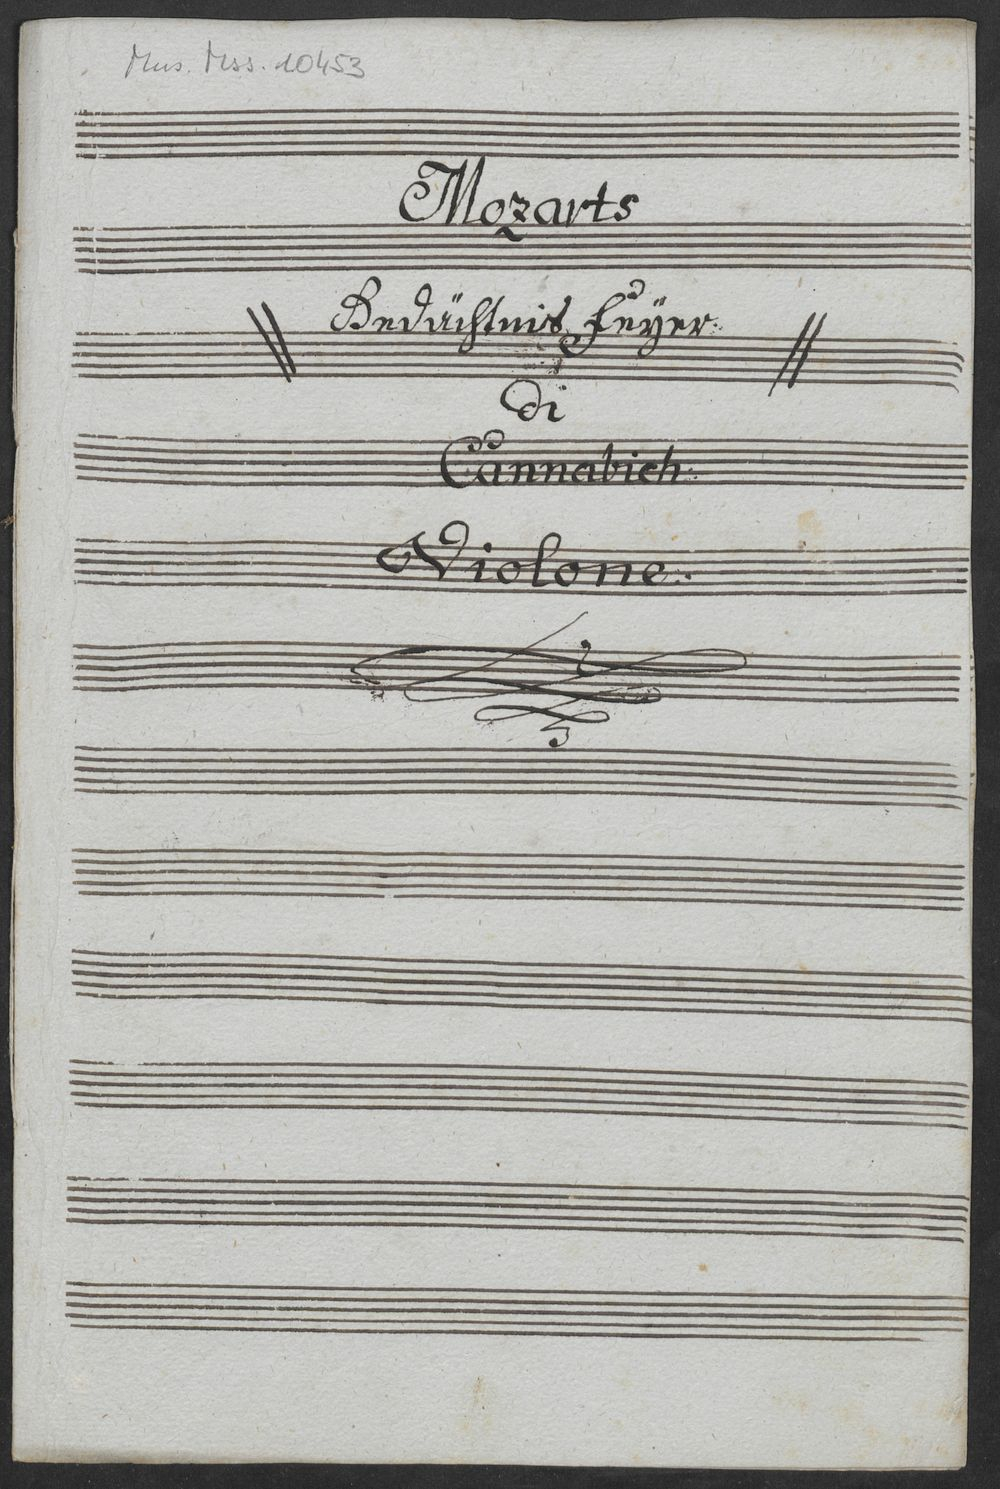 Mus. Mss. 10453
Mozarts
Gedächtnis Feÿer.
di
Cannabich:
Violone.